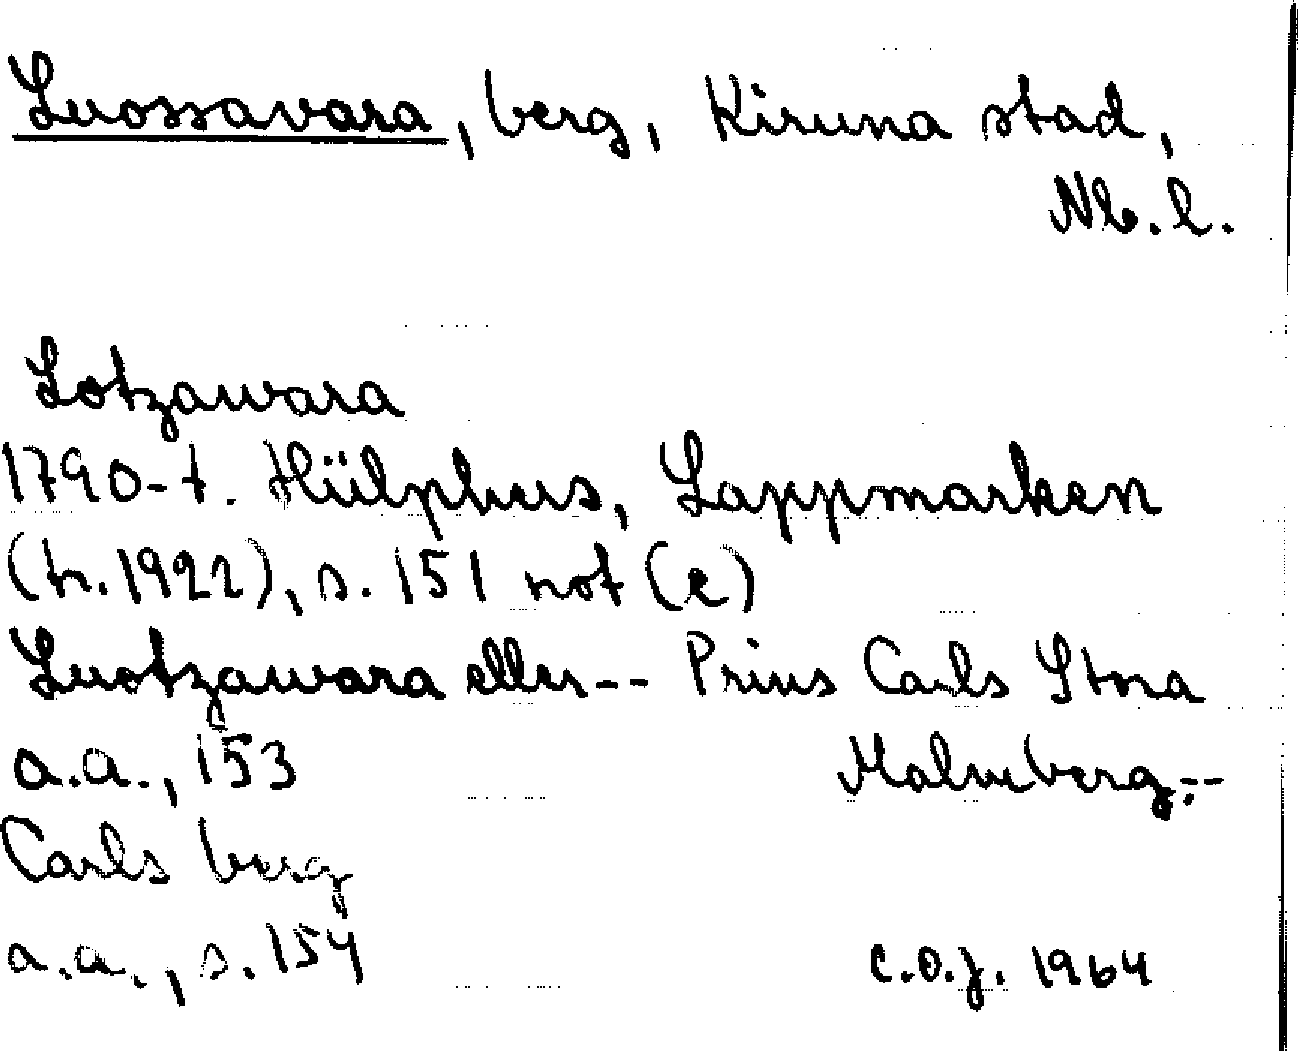 Luossavara, berg, Kiruna stad,
Nb. l.
Lotzawara
1790-t. Hülphers, Lappmarken
(tr. 1922), s. 151 not (e)
Luotzawara eller -- Prins Carls Stora
a.a., 153 Malmberg; --
Carls berg
a.a., s. 154
C.O.J. 1964